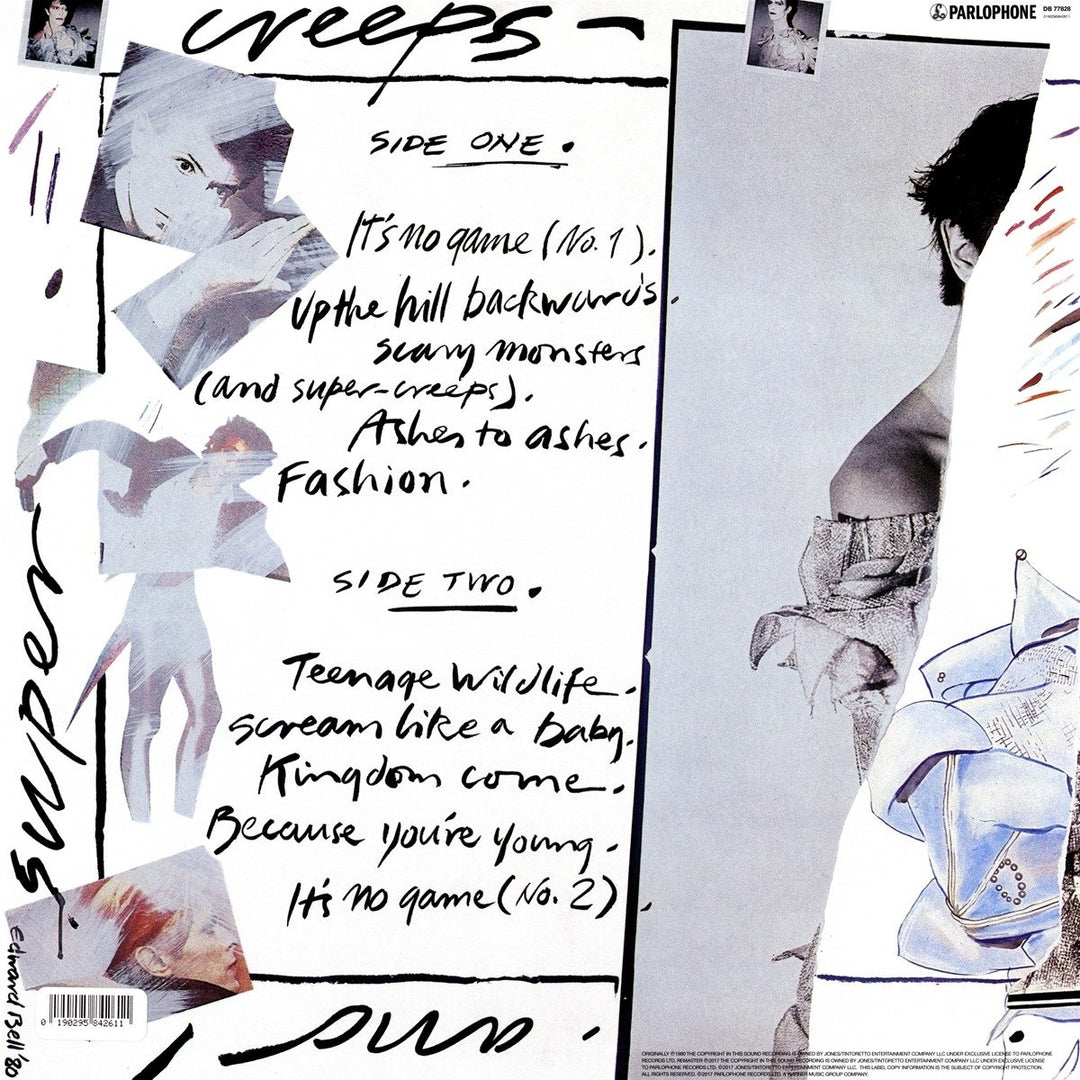 creeps -
PARLOPHONE
DB 77828
SIDE ONE.
It's no game (No. 1).
Up the hill backwards.
scary monsters
(and super-creeps).
Ashes to ashes.
Fashion.
SIDE TWO.
Teenage Wildlife.
scream like a baby.
Kingdom come.
Because you're young.
It's no game (No. 2).
super
and
Edward Bell '80
0 190295 842611
ORIGINALLY ℗ 1980 THE COPYRIGHT IN THIS SOUND RECORDING IS OWNED BY JONES/TINTORETTO ENTERTAINMENT COMPANY LLC UNDER EXCLUSIVE LICENSE TO PARLOPHONE
RECORDS LTD. REMASTER ℗ 2017 THE COPYRIGHT IN THIS SOUND RECORDING IS OWNED BY JONES/TINTORETTO ENTERTAINMENT COMPANY LLC UNDER EXCLUSIVE LICENSE
TO PARLOPHONE RECORDS LTD. © 2017 JONES/TINTORETTO ENTERTAINMENT COMPANY LLC. THIS LABEL COPY INFORMATION IS THE SUBJECT OF COPYRIGHT PROTECTION.
ALL RIGHTS RESERVED. © 2017 PARLOPHONE RECORDS LTD, A WARNER MUSIC GROUP COMPANY.